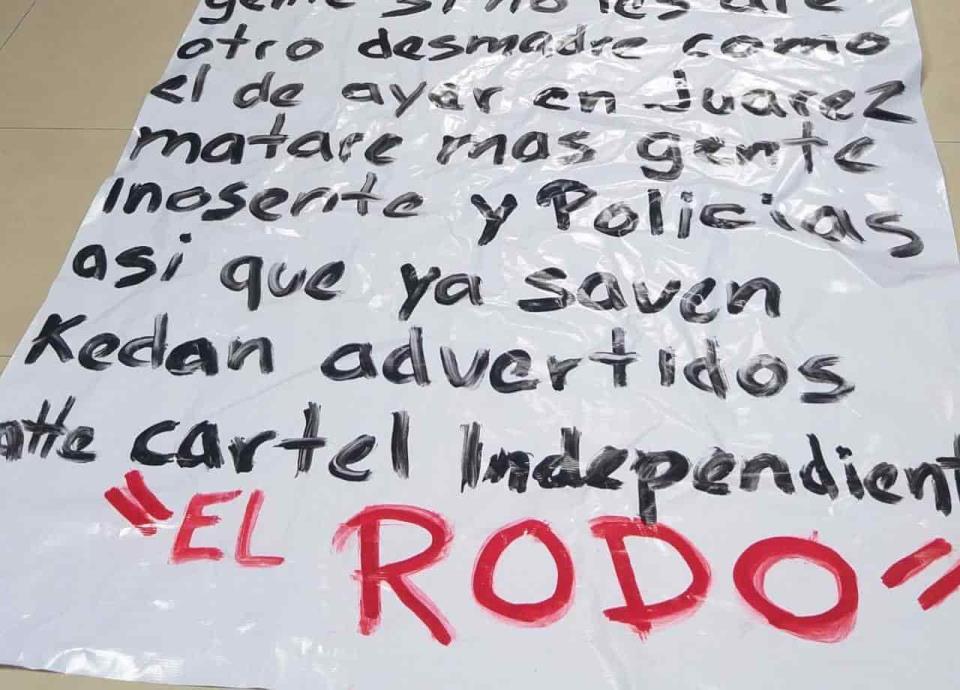 gente si no les dare
otro desmadre como
el de ayer en Juarez
matare mas gente
Inosente y Policias
asi que ya saven
Kedan advertidos
atte cartel Independient
"EL RODO"